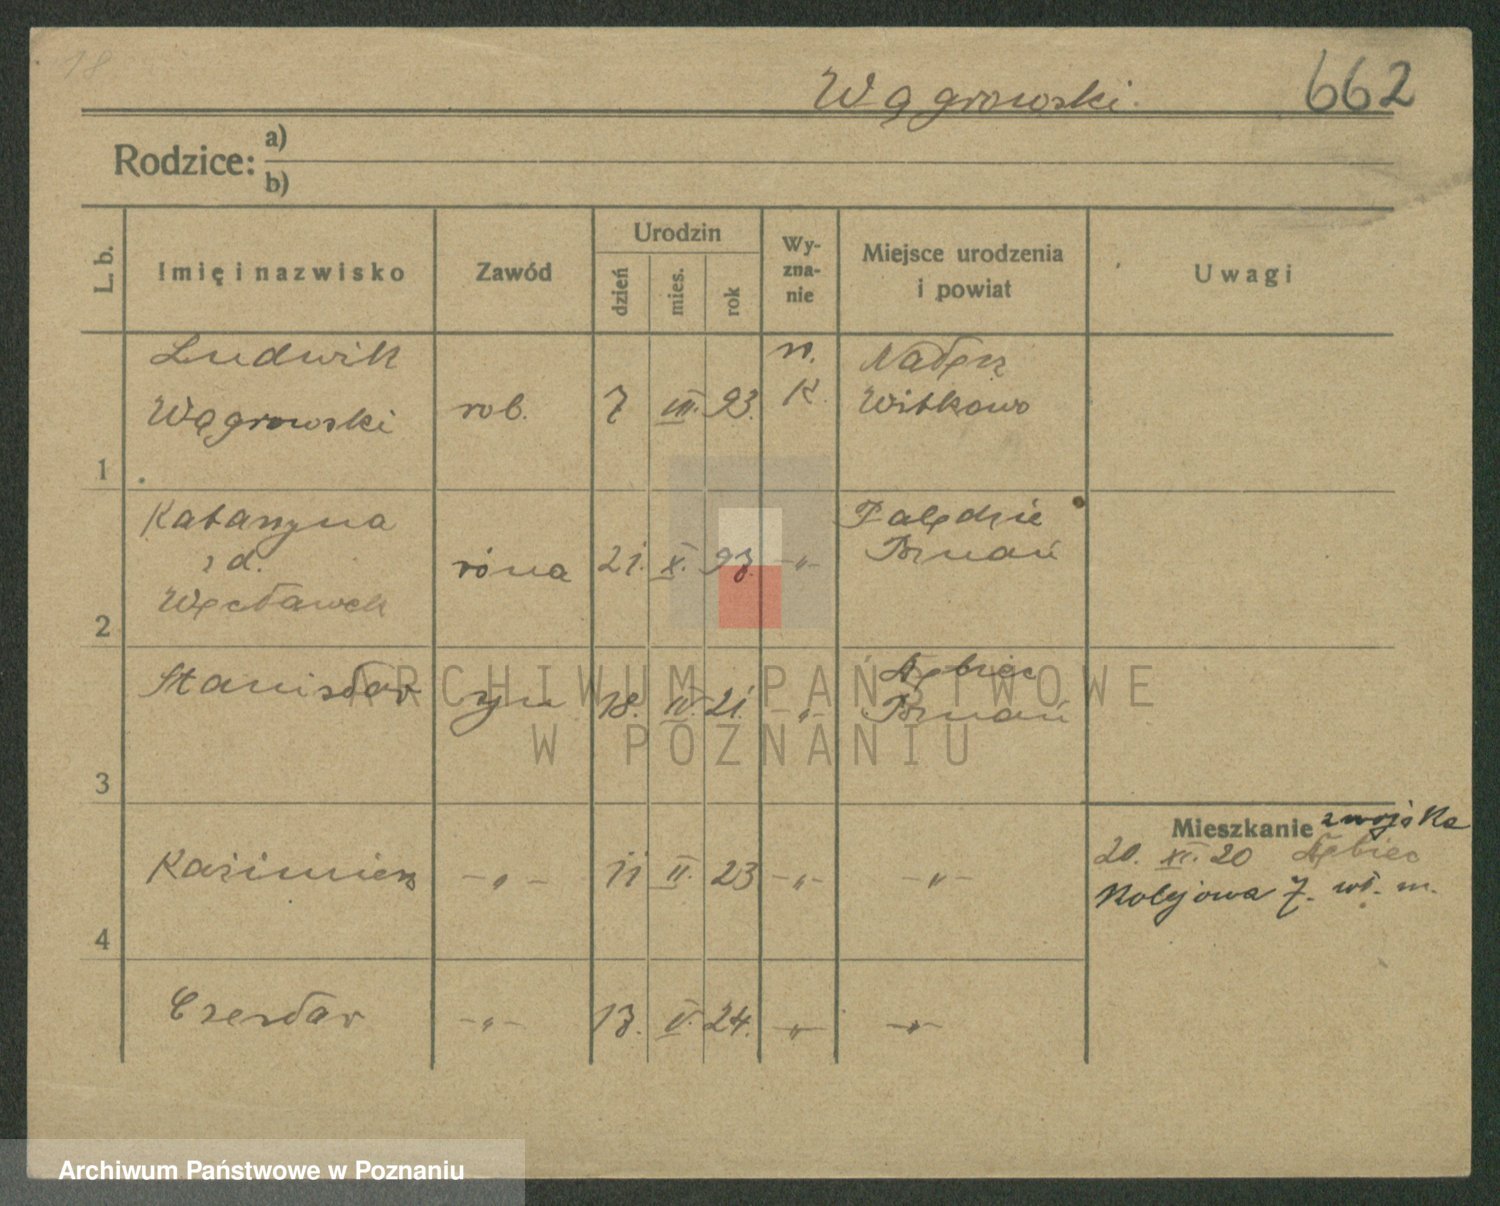 18
Wągrowski.
662
Rodzice:
a)
b)
L. b.
Imię i nazwisko
Zawód
Urodzin
dzień
mies.
rok
Wy-
zna-
nie
Miejsce urodzenia
i powiat
Uwagi
1
Ludwik
Wągrowski
rob.
7
VIII.
93.
rz.
K.
Witkowo
2
Katarzyna
z d.
Węcławek
żona
21.
X.
93.
-„-
Palędzie
Pznań
3
Stanisław
syn
18.
IV.
21.
-„-
Dębiec
Pznań
4
Kaźimierz
-„-
11
II.
23
-„-
-„-
Czesław
-„-
13.
V.
24.
-„-
-„-
Mieszkanie z wojska
20. XI. 20 Dębiec
Kolejowa 7. wł. m.
ARCHIWUM PAŃSTWOWE
W POZNANIU
Archiwum Państwowe w Poznaniu